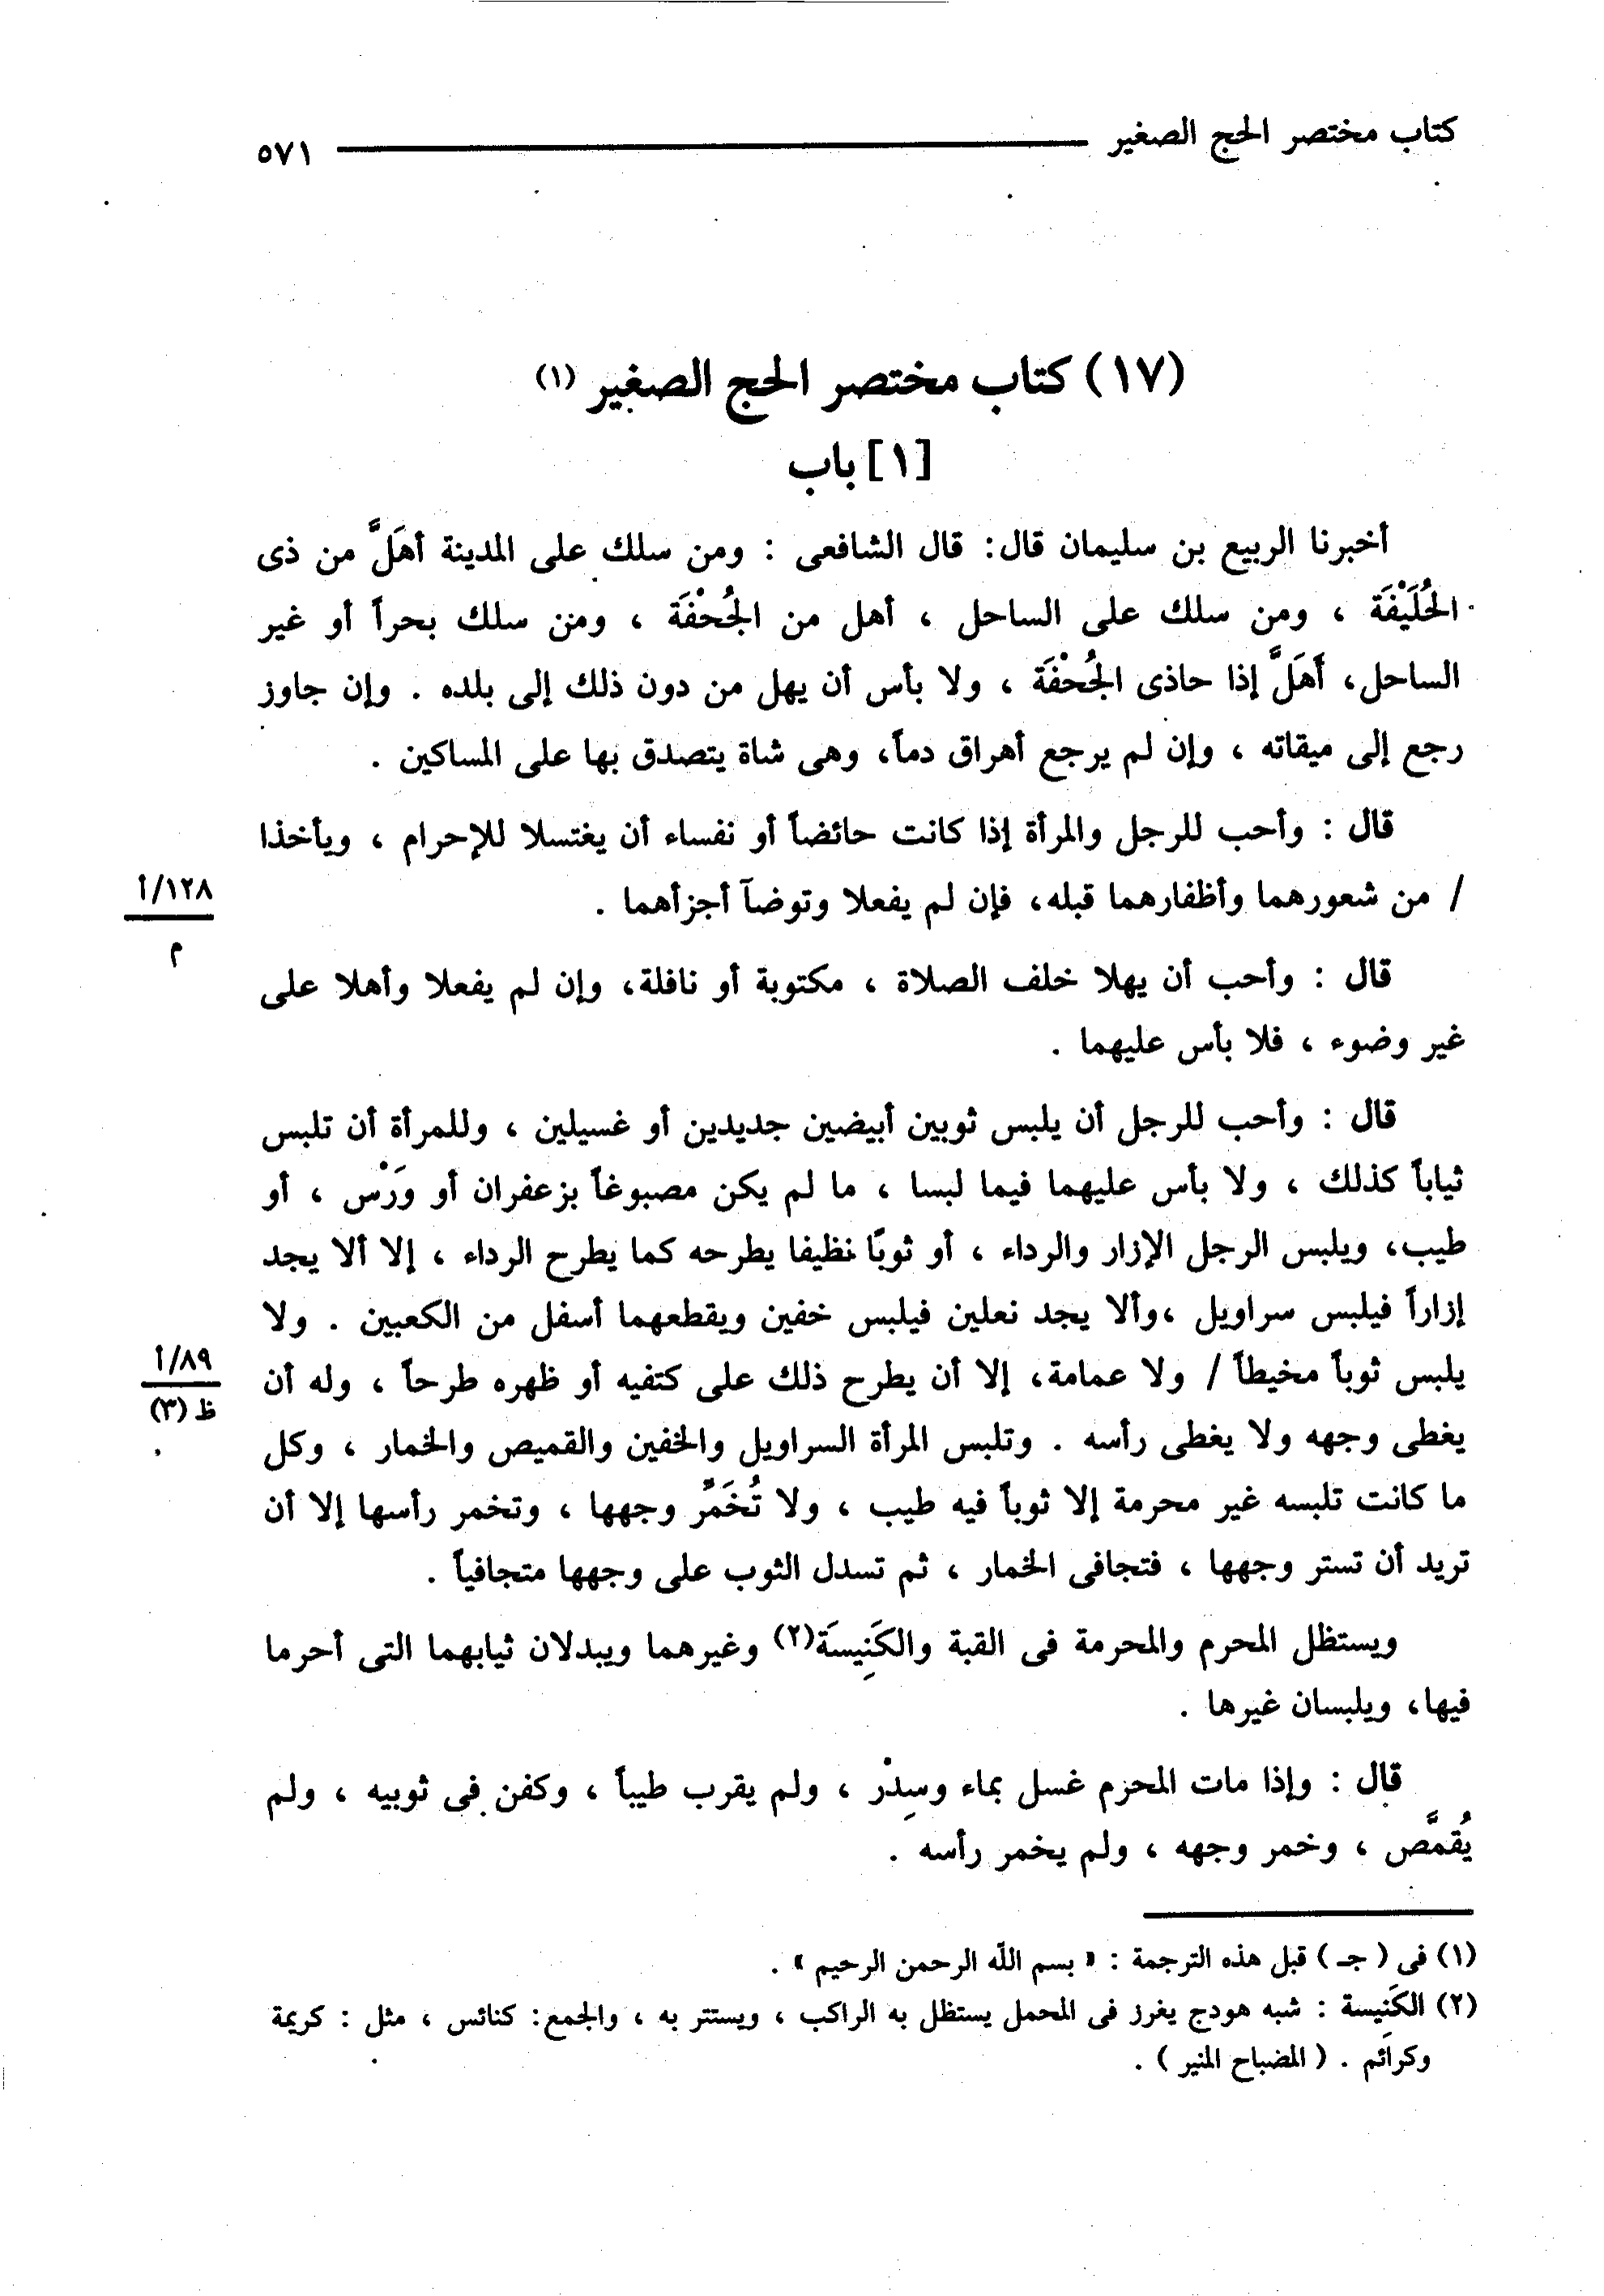 كتاب مختصر الحج الصغير ٥٧١
(١٧) كتاب مختصر الحج الصغير (١)
[١] باب
أخبرنا الربيع بن سليمان قال: قال الشافعى : ومن سلك على المدينة أهَلَّ من ذى
الحُلَيْفَة ، ومن سلك على الساحل ، أهل من الجُحْفَة ، ومن سلك بحراً أو غير
الساحل، أَهَلَّ إذا حاذى الجُحْفَة ، ولا بأس أن يهل من دون ذلك إلى بلده . وإن جاوز
رجع إلى ميقاته ، وإن لم يرجع أهراق دماً، وهى شاة يتصدق بها على المساكين .
قال : وأحب للرجل والمرأة إذا كانت حائضاً أو نفساء أن يغتسلا للإحرام ، ويأخذا
/ من شعورهما وأظفارهما قبله، فإن لم يفعلا وتوضآ أجزأهما .
١٢٨/أ
م
قال : وأحب أن يهلا خلف الصلاة ، مكتوبة أو نافلة، وإن لم يفعلا وأهلا على
غير وضوء ، فلا بأس عليهما .
قال : وأحب للرجل أن يلبس ثوبين أبيضين جديدين أو غسيلين ، وللمرأة أن تلبس
ثياباً كذلك ، ولا بأس عليهما فيما لبسا ، ما لم يكن مصبوغاً بزعفران أو وَرْس ، أو
طيب، ويلبس الرجل الإزار والرداء ، أو ثوبًا نظيفا يطرحه كما يطرح الرداء ، إلا ألا يجد
إزاراً فيلبس سراويل ،وألا يجد نعلين فيلبس خفين ويقطعهما أسفل من الكعبين . ولا
يلبس ثوباً مخيطاً / ولا عمامة، إلا أن يطرح ذلك على كتفيه أو ظهره طرحاً ، وله أن
٨٩/أ
ظ (٣)
يغطى وجهه ولا يغطى رأسه . وتلبس المرأة السراويل والخفين والقميص والخمار ، وكل
ما كانت تلبسه غير محرمة إلا ثوباً فيه طيب ، ولا تُخَمِّر وجهها ، وتخمر رأسها إلا أن
تريد أن تستر وجهها ، فتجافى الخمار ، ثم تسدل الثوب على وجهها متجافياً .
ويستظل المحرم والمحرمة فى القبة والكَنِيسَة(٢) وغيرهما ويبدلان ثيابهما التى أحرما
فيها، ويلبسان غيرها .
قال : وإذا مات المحرم غسل بماء وسِدْر ، ولم يقرب طيباً ، وكفن فى ثوبيه ، ولم
يُقمَّص ، وخمر وجهه ، ولم يخمر رأسه .
(١) فى ( جـ ) قبل هذه الترجمة : « بسم اللّه الرحمن الرحيم » .
(٢) الكَنِيسة : شبه هودج يغرز فى المحمل يستظل به الراكب ، ويستتر به ، والجمع: كنائس ، مثل : كريمة
وكرائم . ( المصباح المنير ) .